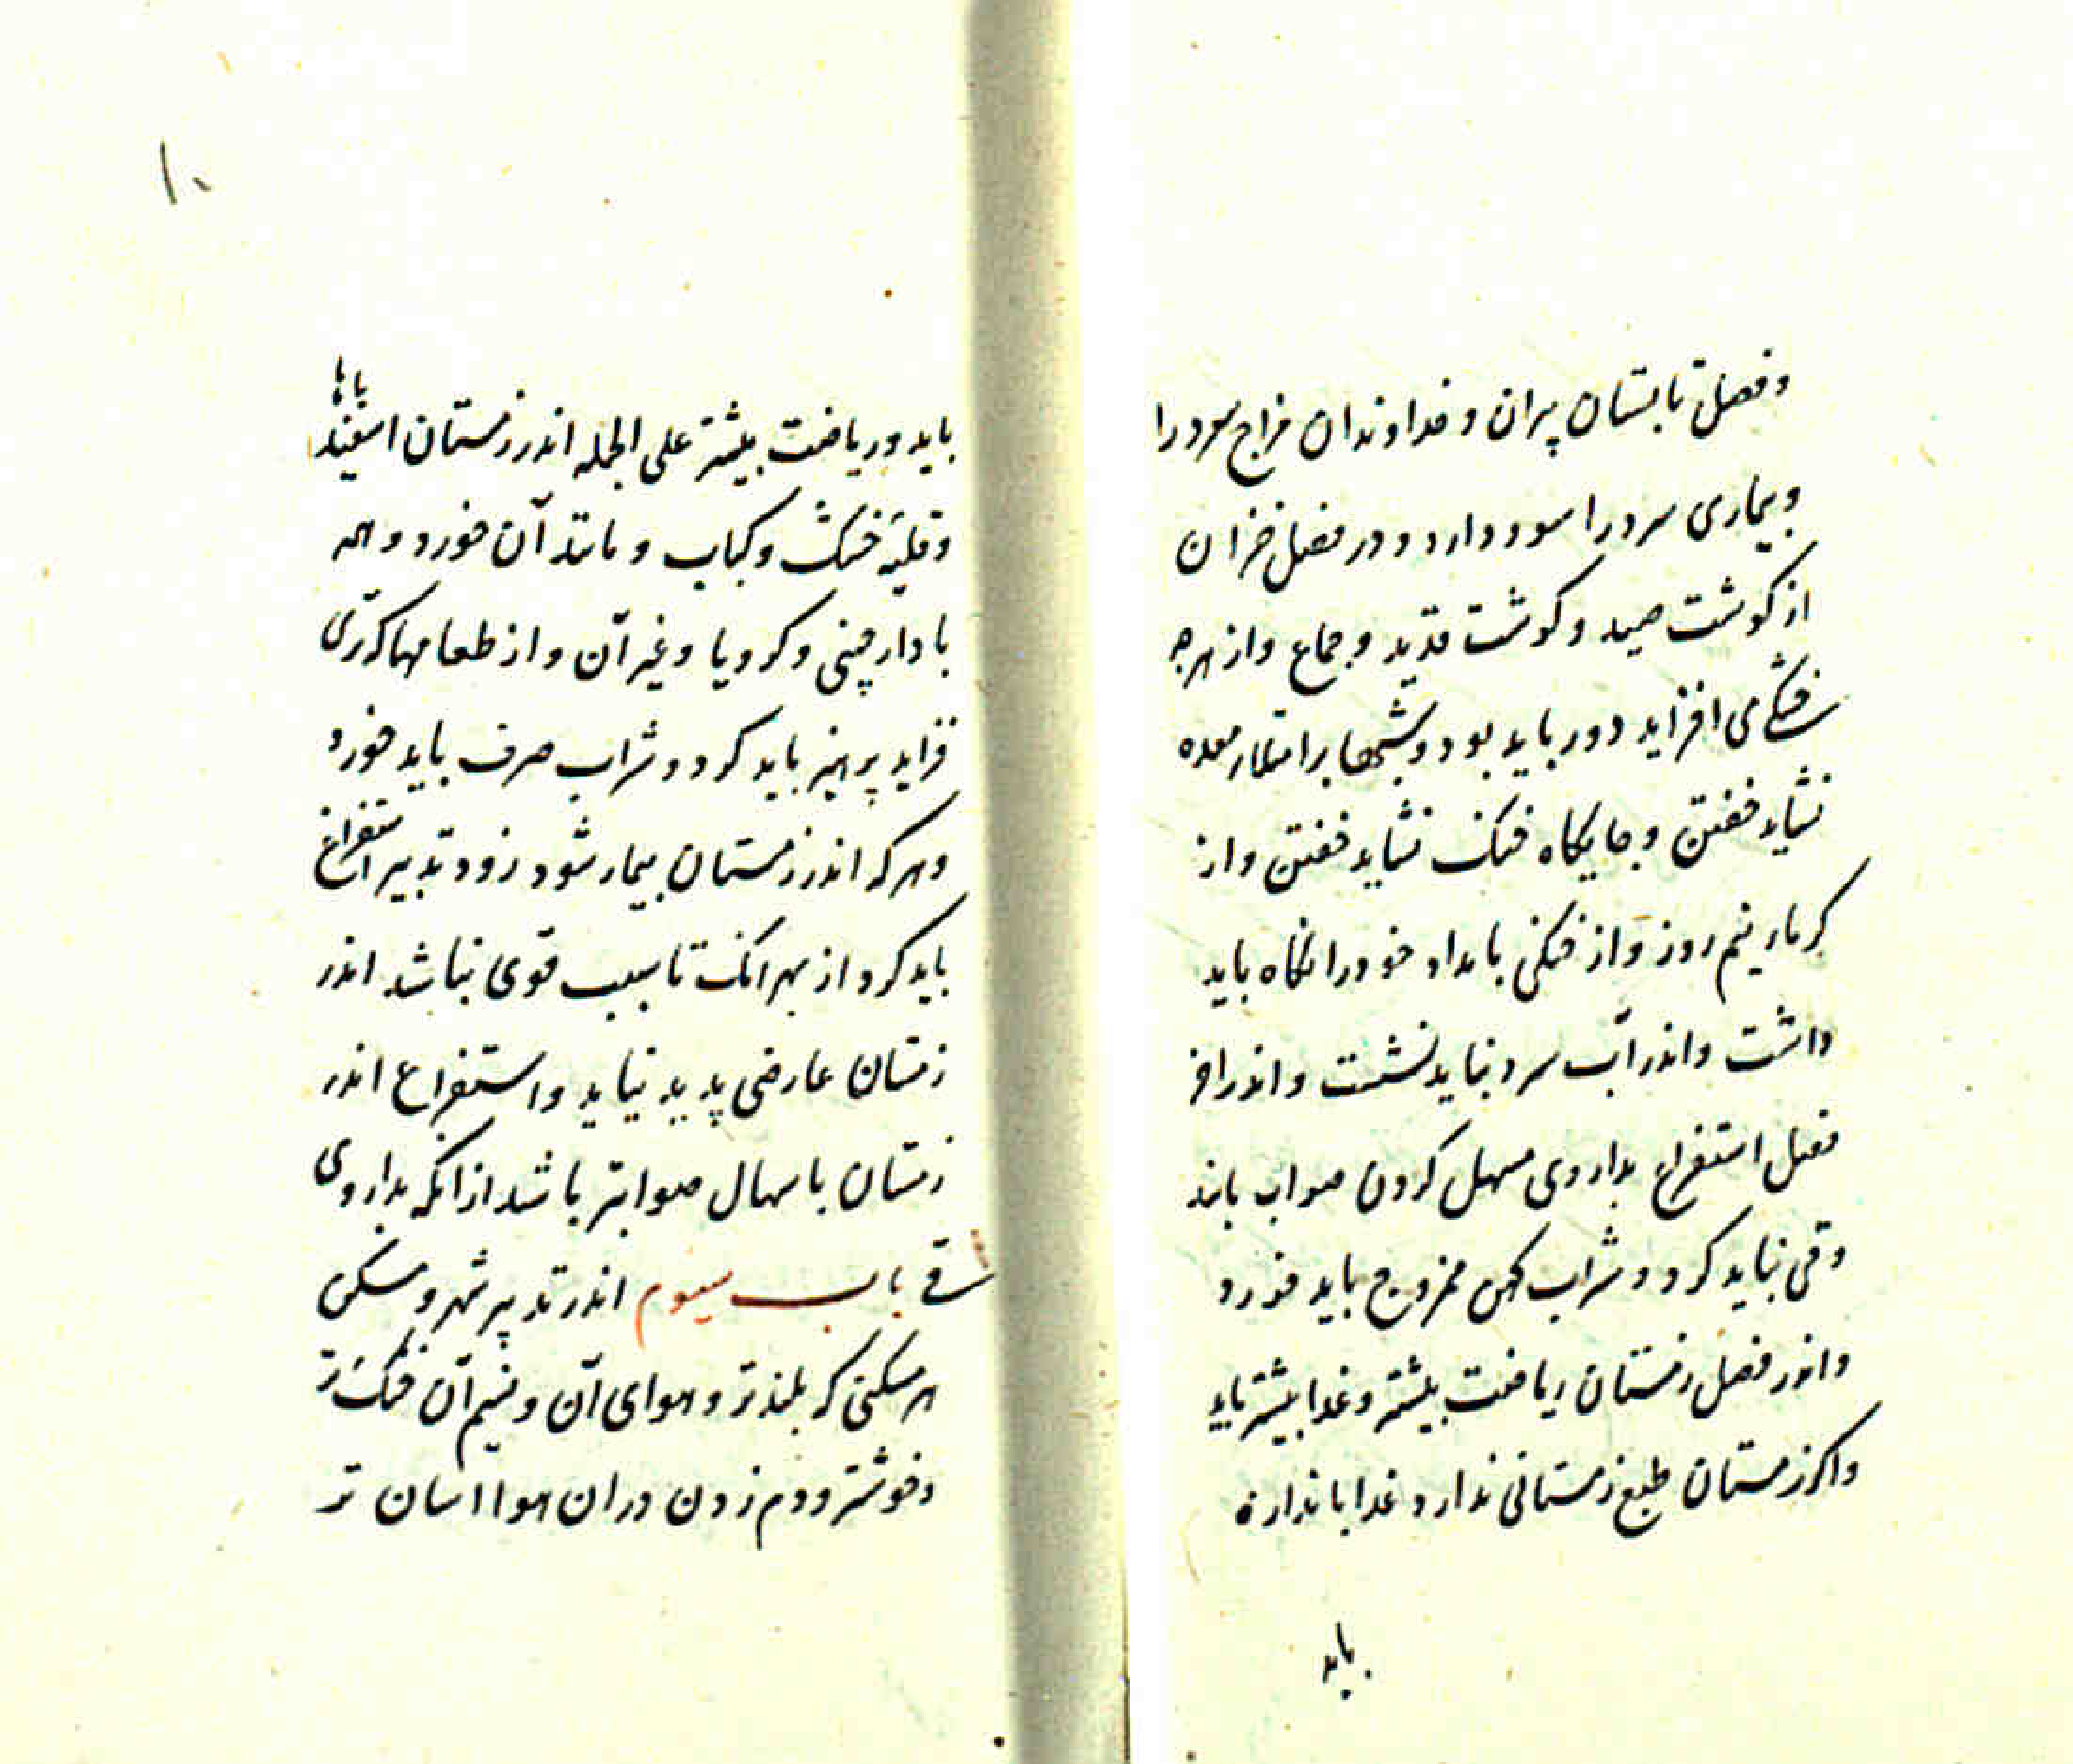 وفصل تابستان پیران و خداوندان مزاج سرد را
وبیماری سرد را سود دارد و در فصل خزان
از کوشت صید و کوشت قدید و جماع و از هرچه
خشکی افزاید دور باید بود و شبها بر امتلاء معده
نشاید خفتن و جایکاه خنک نشاید خفتن و از
کرماء نیم روز و از خنکی بامداد خود را نکاه باید
داشت و اندر آب سرد نباید نشست و اندر اخر
فصل استفراغ بداروی مسهل کردن صواب باشد
وقی نباید کرد و شراب کهن ممزوج باید خورد
و اندر فصل زمستان ریاضت بیشتر و غدا بیشتر باید
واکر زمستان طبع زمستانی ندارد غدا باندازه
باید
۱۰
باید و ریاضت بیشتر علی الجمله اندر زمستان اسفیدباها
و قلیهٔ خشک و کباب و مانند آن خورد و همه
با دارچینی و کرویا و غیر آن و از طعامها که تری
فزاید پرهیز باید کرد و شراب صرف باید خورد
وهرکه اندر زمستان بیمار شود زود تدبیر استفراغ
باید کرد از بهر انک تا سبب قوی نباشد اندر
زمستان عارضی پدید نیاید و استفراغ اندر
زمستان باسهال صوابتر باشد از انکه بداروی
قی باب سیوم اندر تدبیر شهر و مسکن
هر مسکنی که بلندتر و هوای آن و نسیم آن خنک تر
و خوشتر و دم زدن دران هوا اسان تر